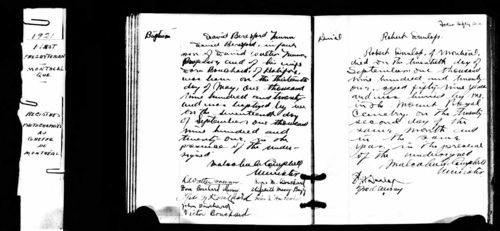 1921
FIRST
PRESBYTERIAN
MONTREAL
QUE.
REGISTRES
PHOTOGRAPHIES
AU
GREFFE
DE
MONTRÉAL
Folio Fifty One
Baptism
David Beresford
David Beresford, infant
son of David Walter
and of his wife
was born on the thirteenth
day of May, one thousand
nine hundred and twenty
and was baptized by me
on the seventeenth day
of September one thousand
nine hundred and
twenty one, in the
presence of the under-
signed
Malcolm A. Campbell
Minister
John Bouchard
Victor Bouchard
Burial
Robert Dunlop.
Robert Dunlop, of Montreal,
died on the twentieth day of
September one thousand
nine hundred and twenty
one, aged fifty nine years
and was buried by me
in the Mount Royal
Cemetery on the twenty
second day of the
same month and
in the same
year, in the presence
of the undersigned
Malcolm A. Campbell
Minister